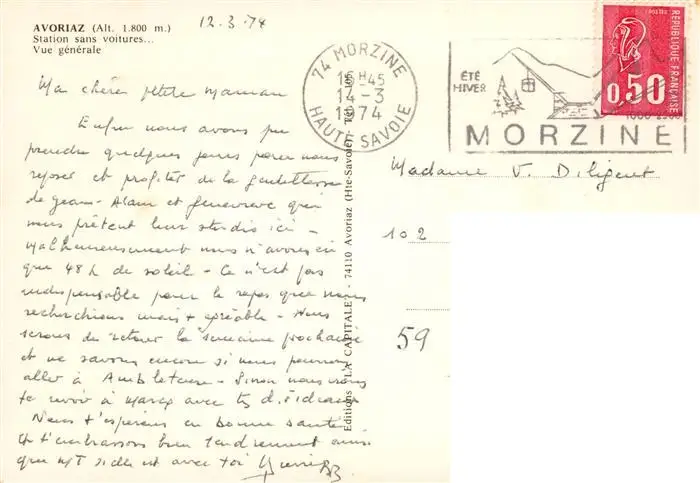 AVORIAZ (Alt. 1.800 m.)
Station sans voitures...
Vue générale
12.3.74
Ma chère petite Maman
Enfin nous avons pu
prendre quelques jours pour nous
reposer et profiter de la gentillesse
de Jean-Alain et Geneviève qui
nous prêtent leur studio ici -
Malheureusement nous n'avons eu
que 48 h de soleil - Ce n'est pas
indispensable pour le repos que nous
recherchions mais + agréable - Nous
serons de retour la semaine prochaine
et ne savons encore si nous pourrons
aller à Ambleteuse - Sinon nous irons
te voir à Marcq avec
Nous t'espérons en bonne santé
et t'embrassons bien tendrement ainsi
que si elle est avec toi
Editions "LA CAPITALE" - 74110 Avoriaz (Hte-Savoie) Tél. 105
74 MORZINE
15H45
14-3
1974
HAUTE SAVOIE
ÉTÉ
HIVER
MORZINE
RÉPUBLIQUE FRANÇAISE
0,50
Madame V. Diligent
102
59